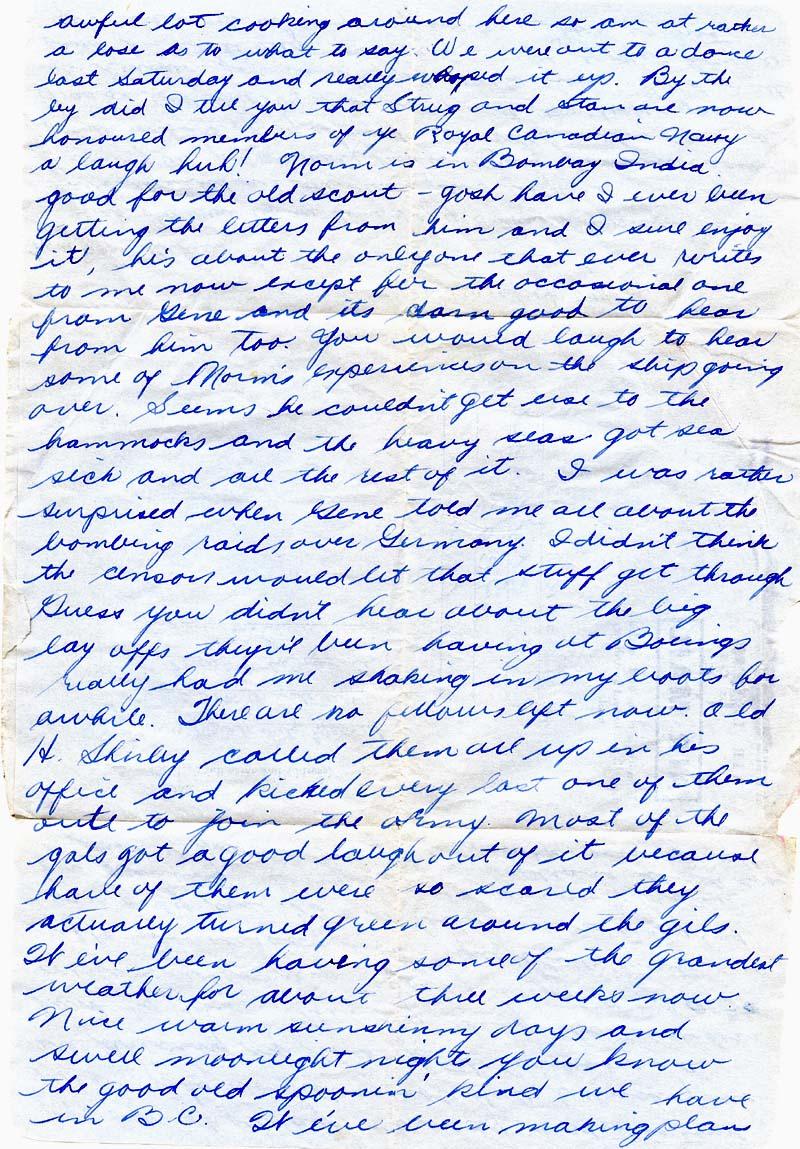 awful lot cooking around here so am at rather
a lose as to what to say. We were out to a dance
last Saturday and really whooped it up. By the
by did I tell you that Strug and Stan are now
honoured members of ye Royal Canadian Navy
a laugh huh! Norm is in Bombay India.
good for the old scout - gosh have I ever been
getting the letters from him and I sure enjoy
it, his about the only one that ever writes
to me now except for the occasional one
from Gene and its darn good to hear
from him too. You would laugh to hear
some of Norm's experiences on the ship going
over. Seems he couldn't get use to the
hammocks and the heavy seas got sea
sick and all the rest of it. I was rather
surprised when Gene told me all about the
bombing raids over Germany. I didn't think
the censors would let that stuff get through
Guess you didn't hear about the big
lay offs they've been having at Boeings
really had me shaking in my boots for
awhile. There are no fellows left now. Old
H. Shirley called them all up in his
office and kicked every last one of them
oute to join the army. Most of the
gals got a good laugh out of it because
half of them were so scared they
actually turned green around the gils.
We've been having some of the grandest
weather for about three weeks now.
Nice warm sunshinny days and
swell moonlight nights you know
the good old spoonin' kind we have
in B.C. We've been making plans